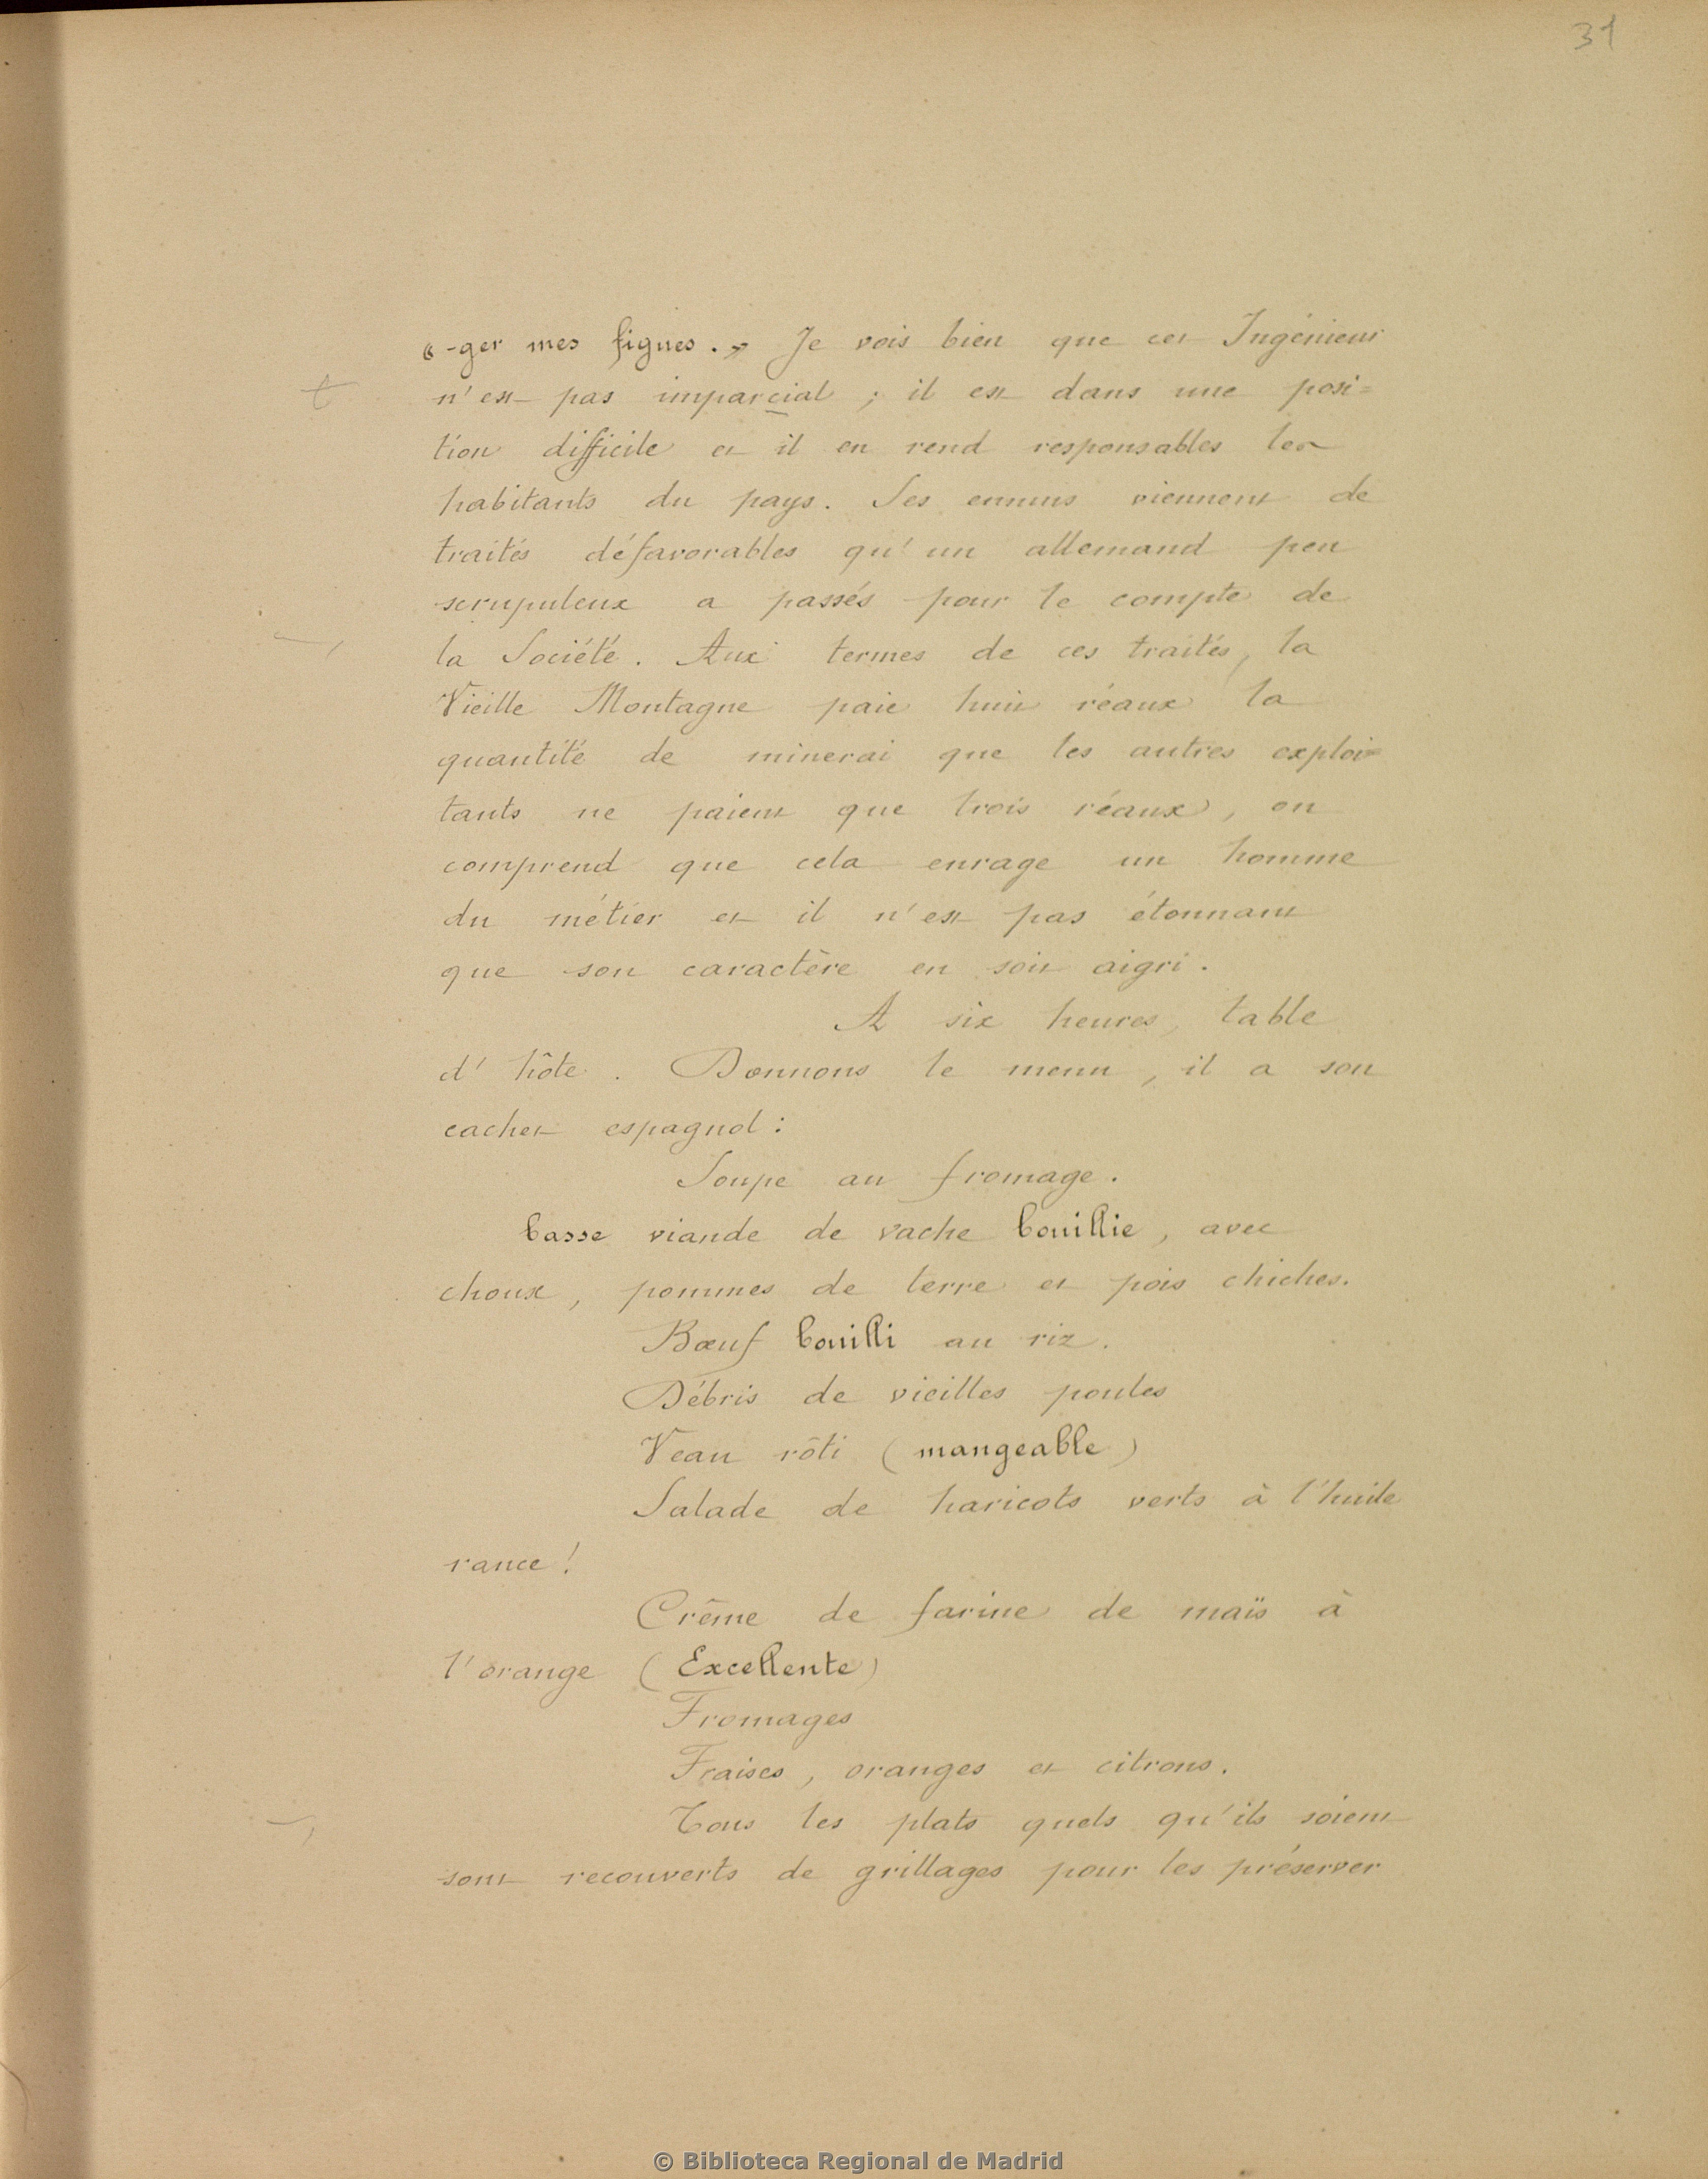 31
« -ger mes figues. » Je vois bien que cet Ingénieur
n'est pas imparcial ; il est dans une posi=
tion difficile et il en rend responsables les
habitants du pays. Ses ennuis viennent de
traités défavorables qu'un allemand peu
scrupuleux a passés pour le compte de
la Société. Aux termes de ces traités, la
Vieille Montagne paie huit réaux la
quantité de minerai que les autres exploi=
tants ne paient que trois réaux, on
comprend que cela enrage un homme
du métier et il n'est pas étonnant
que son caractère en soit aigri.
A six heures, table
d'hôte. Donnons le menu, il a son
cachet espagnol :
Soupe au fromage.
basse viande de vache bouillie, avec
choux, pommes de terre et pois chiches.
Bœuf bouilli au riz.
Débris de vieilles poules
Veau rôti (mangeable)
Salade de haricots verts à l'huile
rance !
Crême de farine de maïs à
l'orange (Excellente)
Fromages
Fraises, oranges et citrons.
Tous les plats quels qu'ils soient
sont recouverts de grillages pour les préserver
© Biblioteca Regional de Madrid